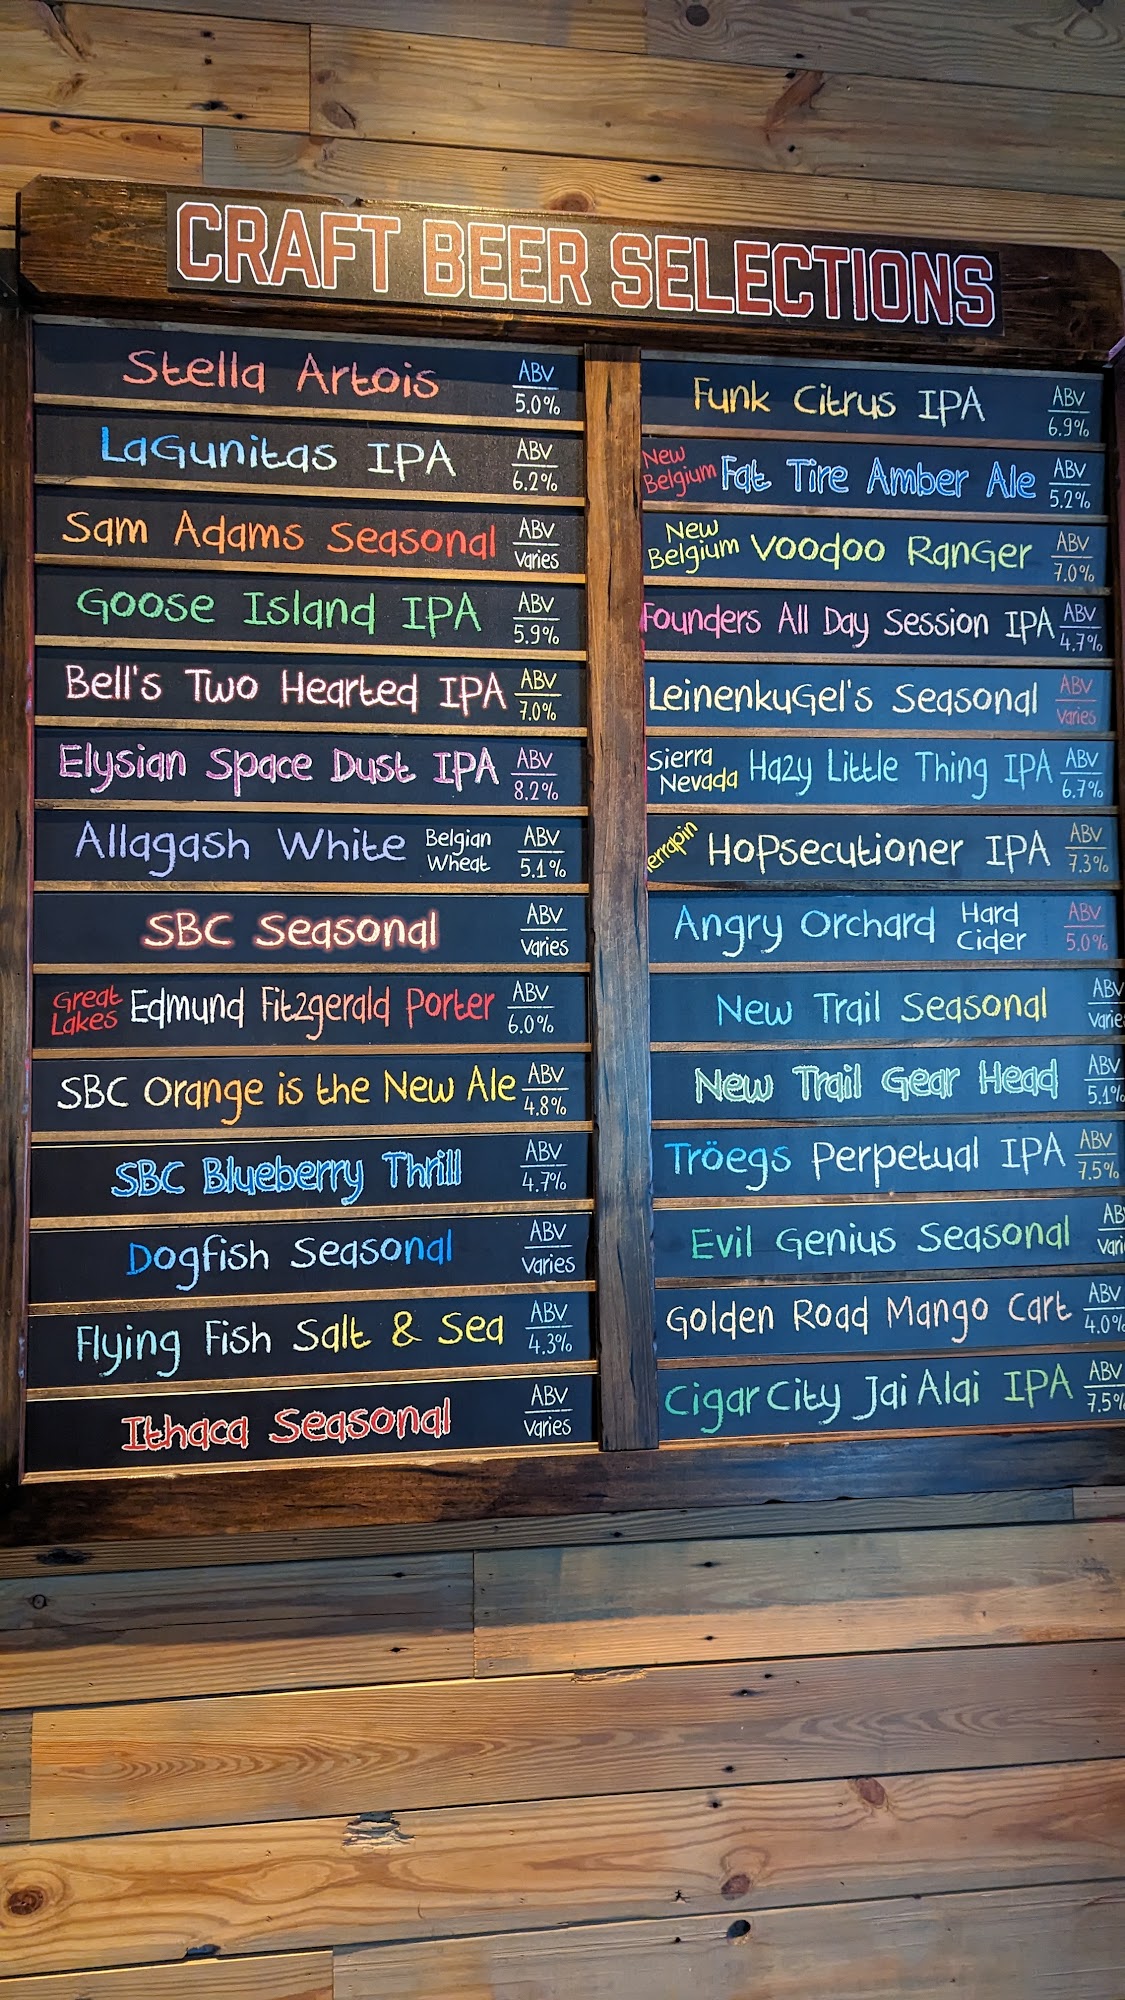 CRAFT BEER SELECTIONS
Stella Artois ABV 5.0%
LaGunitas IPA ABV 6.2%
Sam Adams Seasonal ABV varies
Goose Island IPA ABV 5.9%
Bell's Two Hearted IPA ABV 7.0%
Elysian Space Dust IPA ABV 8.2%
Allagash White Belgian Wheat ABV 5.1%
SBC Seasonal ABV varies
Great Lakes Edmund Fitzgerald Porter ABV 6.0%
SBC Orange is the New Ale ABV 4.8%
SBC Blueberry Thrill ABV 4.7%
Dogfish Seasonal ABV varies
Flying Fish Salt & Sea ABV 4.3%
Ithaca Seasonal ABV varies
Funk Citrus IPA ABV 6.9%
New Belgium Fat Tire Amber Ale ABV 5.2%
New Belgium Voodoo RanGer ABV 7.0%
Founders All Day Session IPA ABV 4.7%
LeinenkuGel's Seasonal ABV varies
Sierra Nevada Hazy Little Thing IPA ABV 6.7%
errapin HoPsecutioner IPA ABV 7.3%
Angry Orchard Hard Cider ABV 5.0%
New Trail Seasonal ABV varie
New Trail Gear Head ABV 5.1%
Tröegs Perpetual IPA ABV 7.5%
Evil Genius Seasonal AB vari
Golden Road Mango Cart ABV 4.0%
Cigar City Jai Alai IPA ABV 7.5%